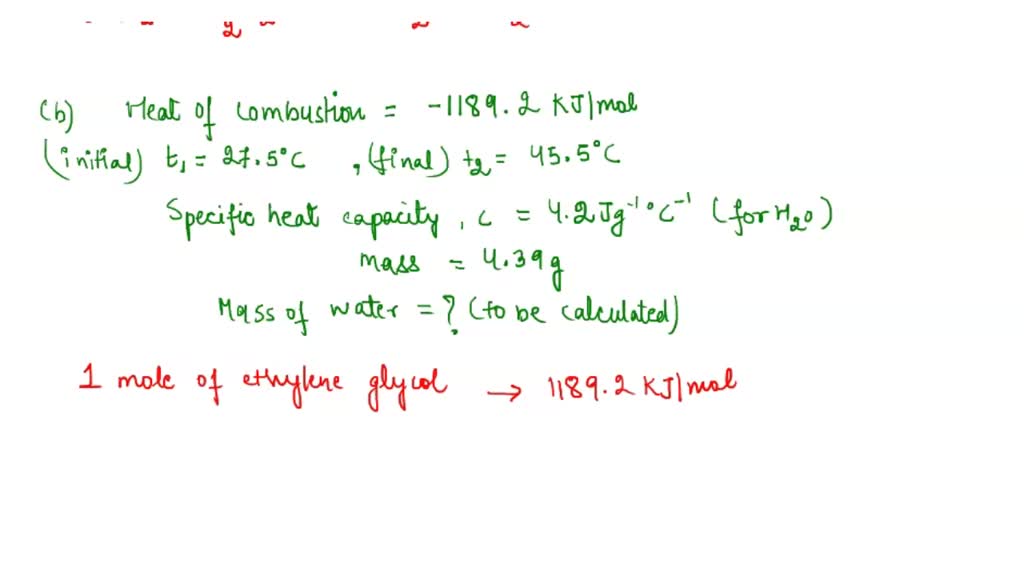 (b) Heat of combustion = -1189.2 KJ/mol
(initial) t₁ = 27.5°C , (final) t₂ = 45.5°C
Specific heat capacity, c = 4.2 Jg⁻¹°C⁻¹ (for H₂O)
mass = 4.39g
Mass of water = ? (to be calculated)
1 mole of ethylene glycol → 1189.2 KJ/mol